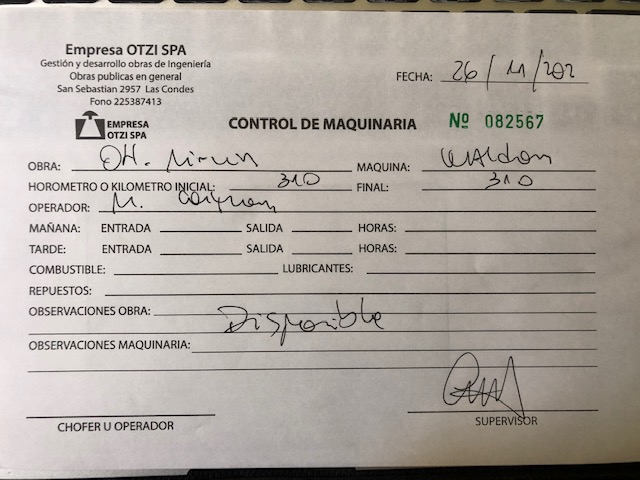 Empresa OTZI SPA
Gestión y desarrollo obras de Ingeniería
Obras publicas en general
San Sebastian 2957 Las Condes
Fono 225387413
FECHA: 26/11/202
EMPRESA
OTZI SPA
CONTROL DE MAQUINARIA Nº 082567
OBRA: MAQUINA:
HOROMETRO O KILOMETRO INICIAL: 310 FINAL: 310
OPERADOR: M.
MAÑANA: ENTRADA SALIDA HORAS:
TARDE: ENTRADA SALIDA HORAS:
COMBUSTIBLE: LUBRICANTES:
REPUESTOS:
OBSERVACIONES OBRA: Disponible
OBSERVACIONES MAQUINARIA:
CHOFER U OPERADOR SUPERVISOR